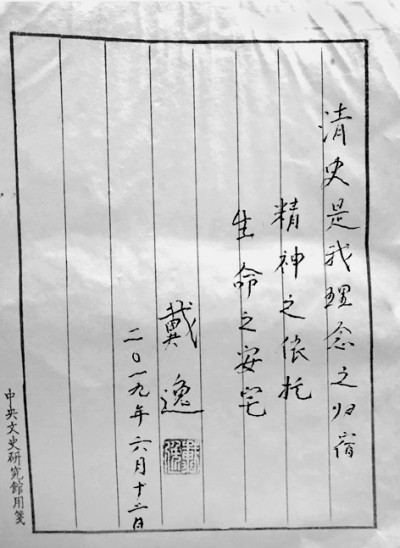 清史是我理念之归宿
精神之依托
生命之安宅
戴逸
二〇一九年六月十二日
中央文史研究馆用笺